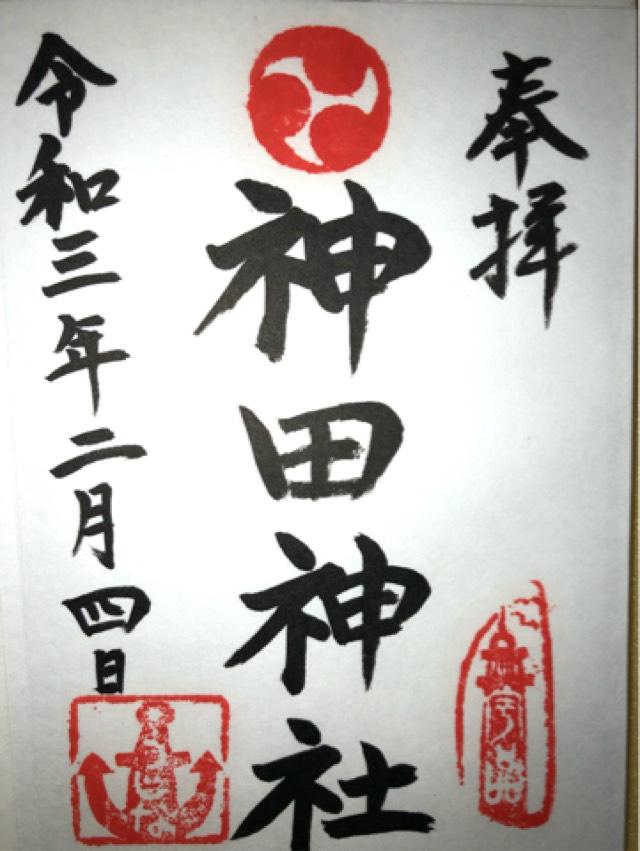 奉拝
神田神社
令和三年二月四日